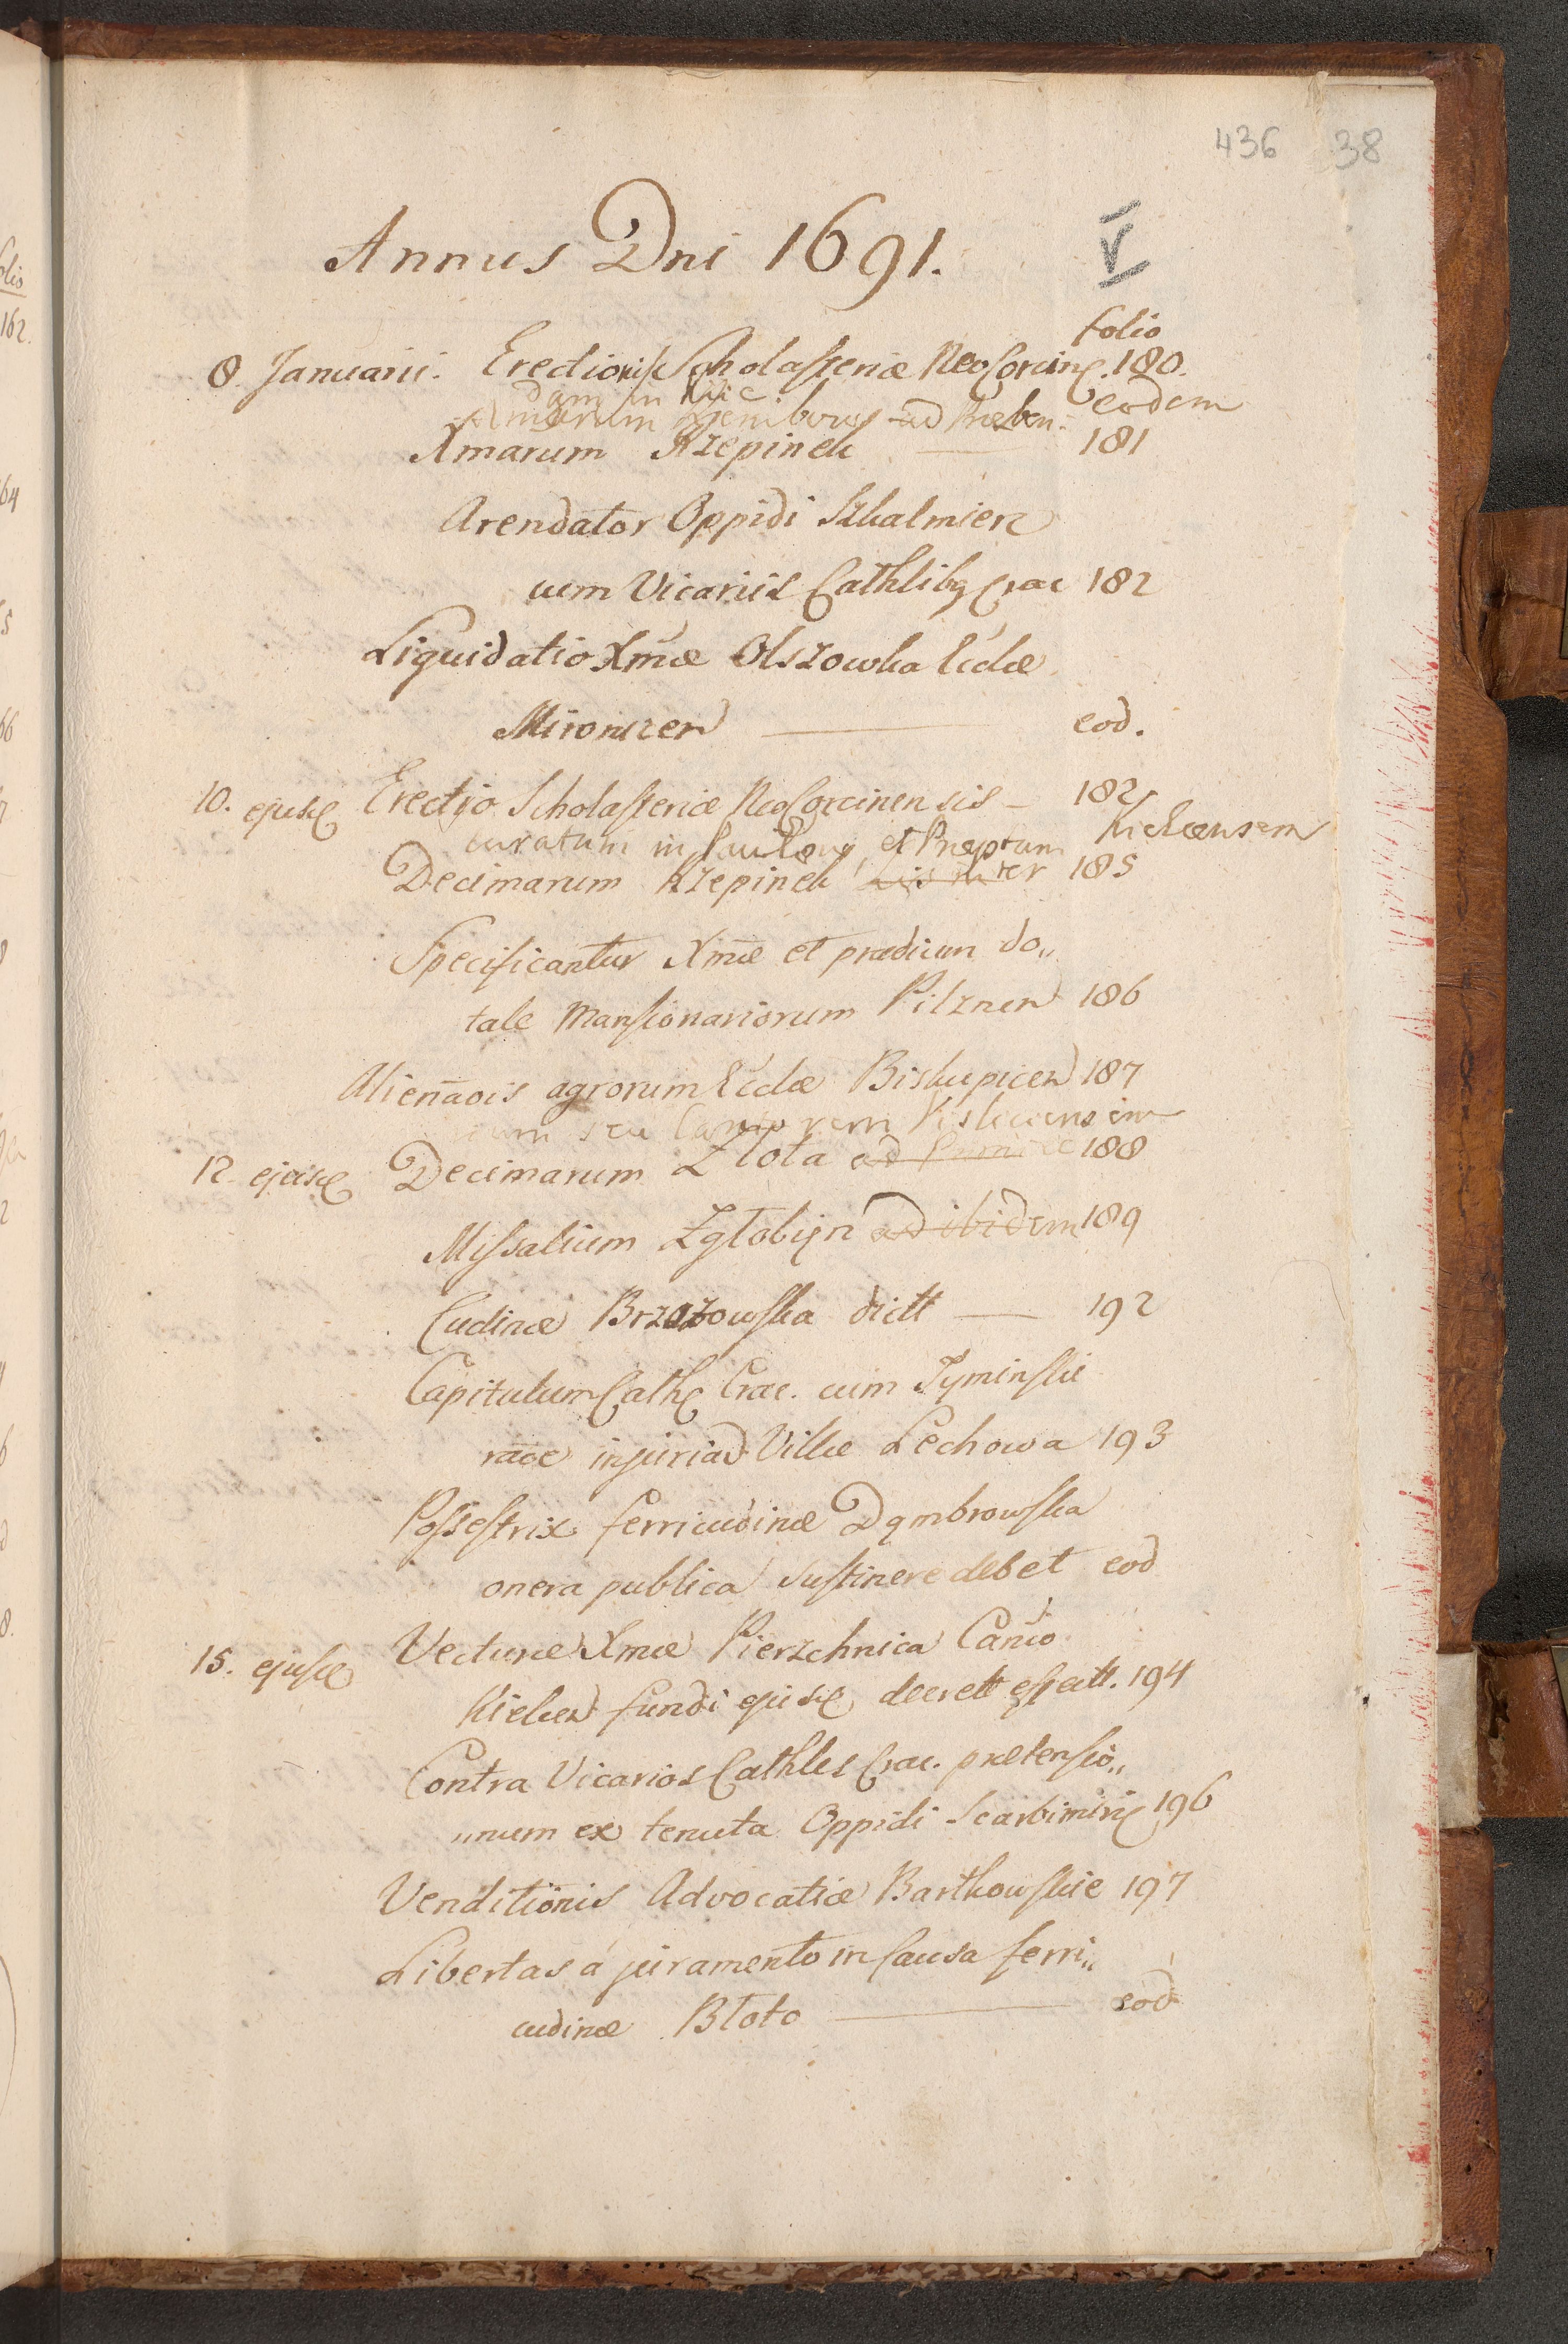 436 38
Annus Dni 1691.
V
folio
8. Januarii. Erectionis Scholasteriæ NeoCorcing. 180.
dam in
Xmarum ad Præben: eodem
Xmarum Rzepinek 181
Arendator Oppidi Skalmierz
cum Vicariis Cathlibq Crac 182
Liquidatio Xmæ Olszowka Ecclæ
Mironicen eod.
10. ejusd Erectio Scholasteriæ NeoCorcinensis 182
curatum in et Præptum Kielcensem
Decimarum Rzepinek inter 185
Specificantur Xmæ et prædium do„
tale Mansionariorum Pilznen 186
Alienaōis agrorum Ecclæ Biskupicen 187
seu Cantorem Vislicensem
12. ejusd Decimarum Złota ad 188
Missalium Zgłobiẏn ad ibidem 189
Cudinæ Brzozowska dict 192
Capitulum Cathe Crac. cum Tyminski
raōe injuriar Villæ Lechowa 193
Possestrix ferricudinæ Dąmbrowska
onera publica sustinere debet eod
15. ejusd Vecturæ Xmæ Pierzchnica Canco
Kielcen fundi ejusd decrett effectt. 194
Contra Vicarios Cathles Crac. prætensio„
„num ex tenuta Oppidi Scarbimirie 196
Venditionis Advocatiæ Bartkowskie 197
Libertas á juramento in Causa ferri„
cudinæ Błoto eod